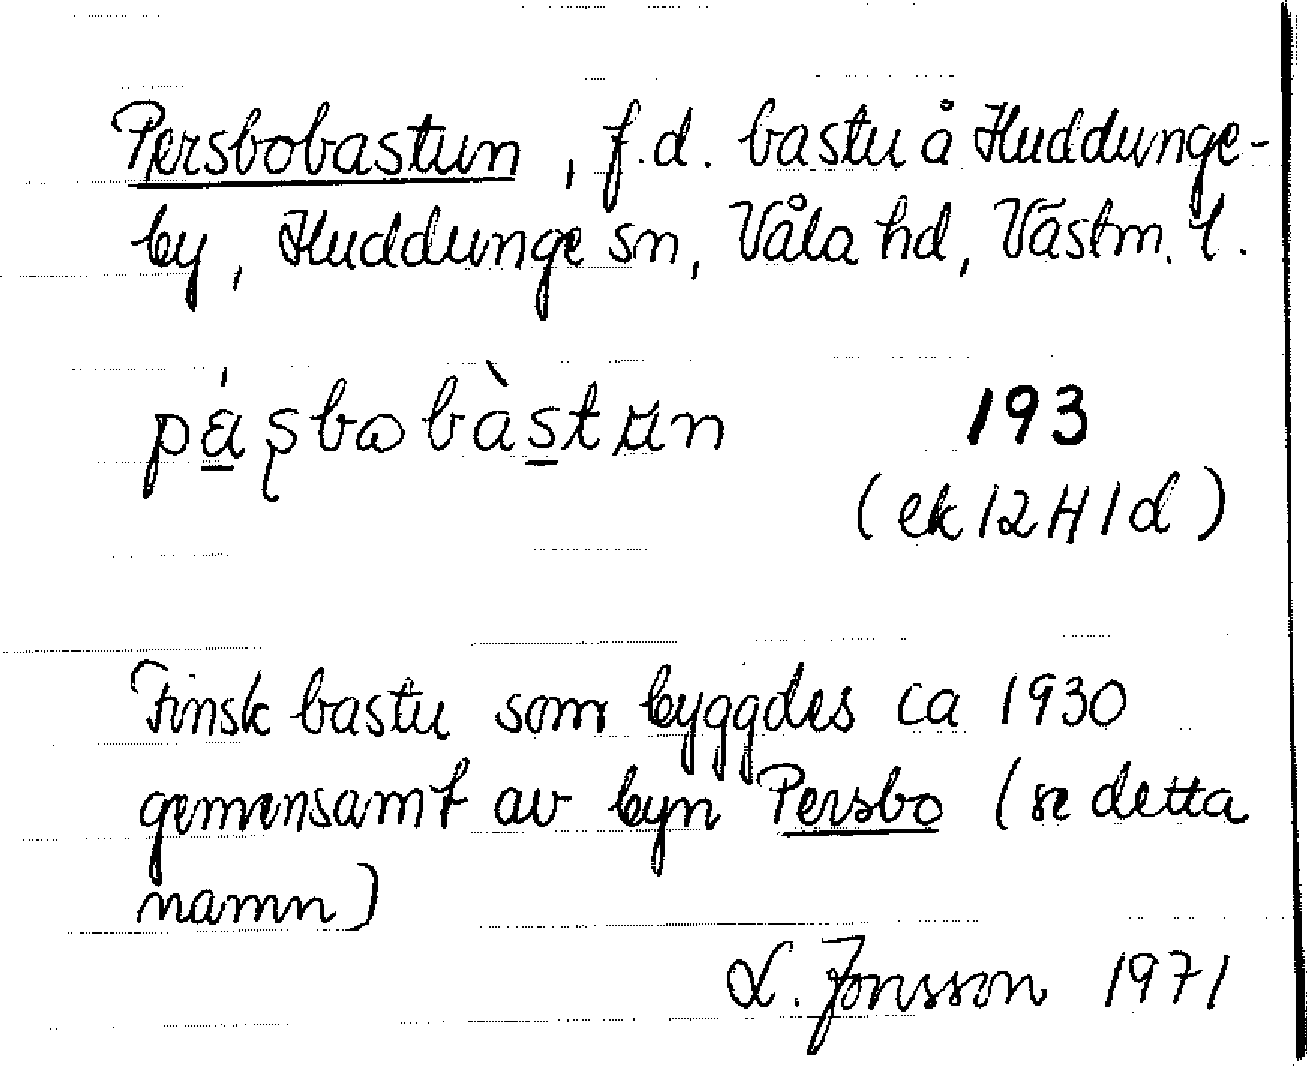 Persbobastun, f.d. bastu å Huddunge-
by, Huddunge sn, Våla hd, Västm. l.
pá̱ʂbobàs̱tun 193
(ek 12H1d)
Finsk bastu som byggdes ca 1930
gemensamt av byn Persbo (se detta
namn)
L. Jonsson 1971